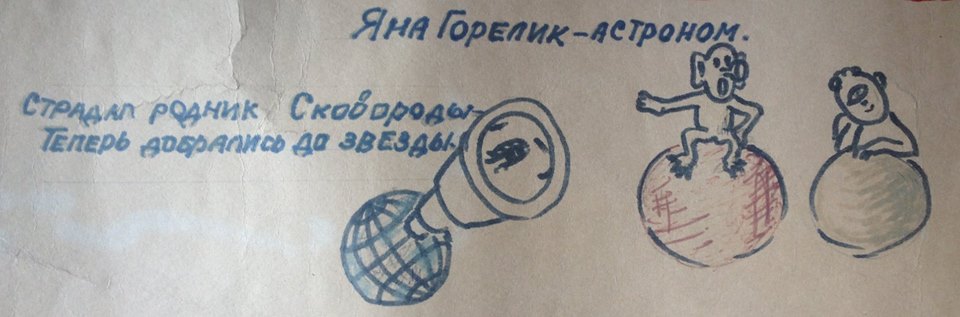 Яна Горелик-астроном.
Страдал родник Сковороды-
Теперь добрались до звезды.